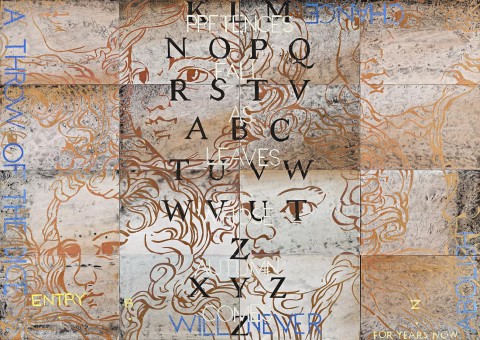 K L M
PRETENCES
CHANCE
N O P Q
FALL
R S T V
AS
A B C
LEAVES
T U V W
W V U T
Z
AUTUMN
X Y Z
COME
Z
A THROW OF THE DICE
WILL NEVER
ENTRY
Z
FOR YEARS NOW